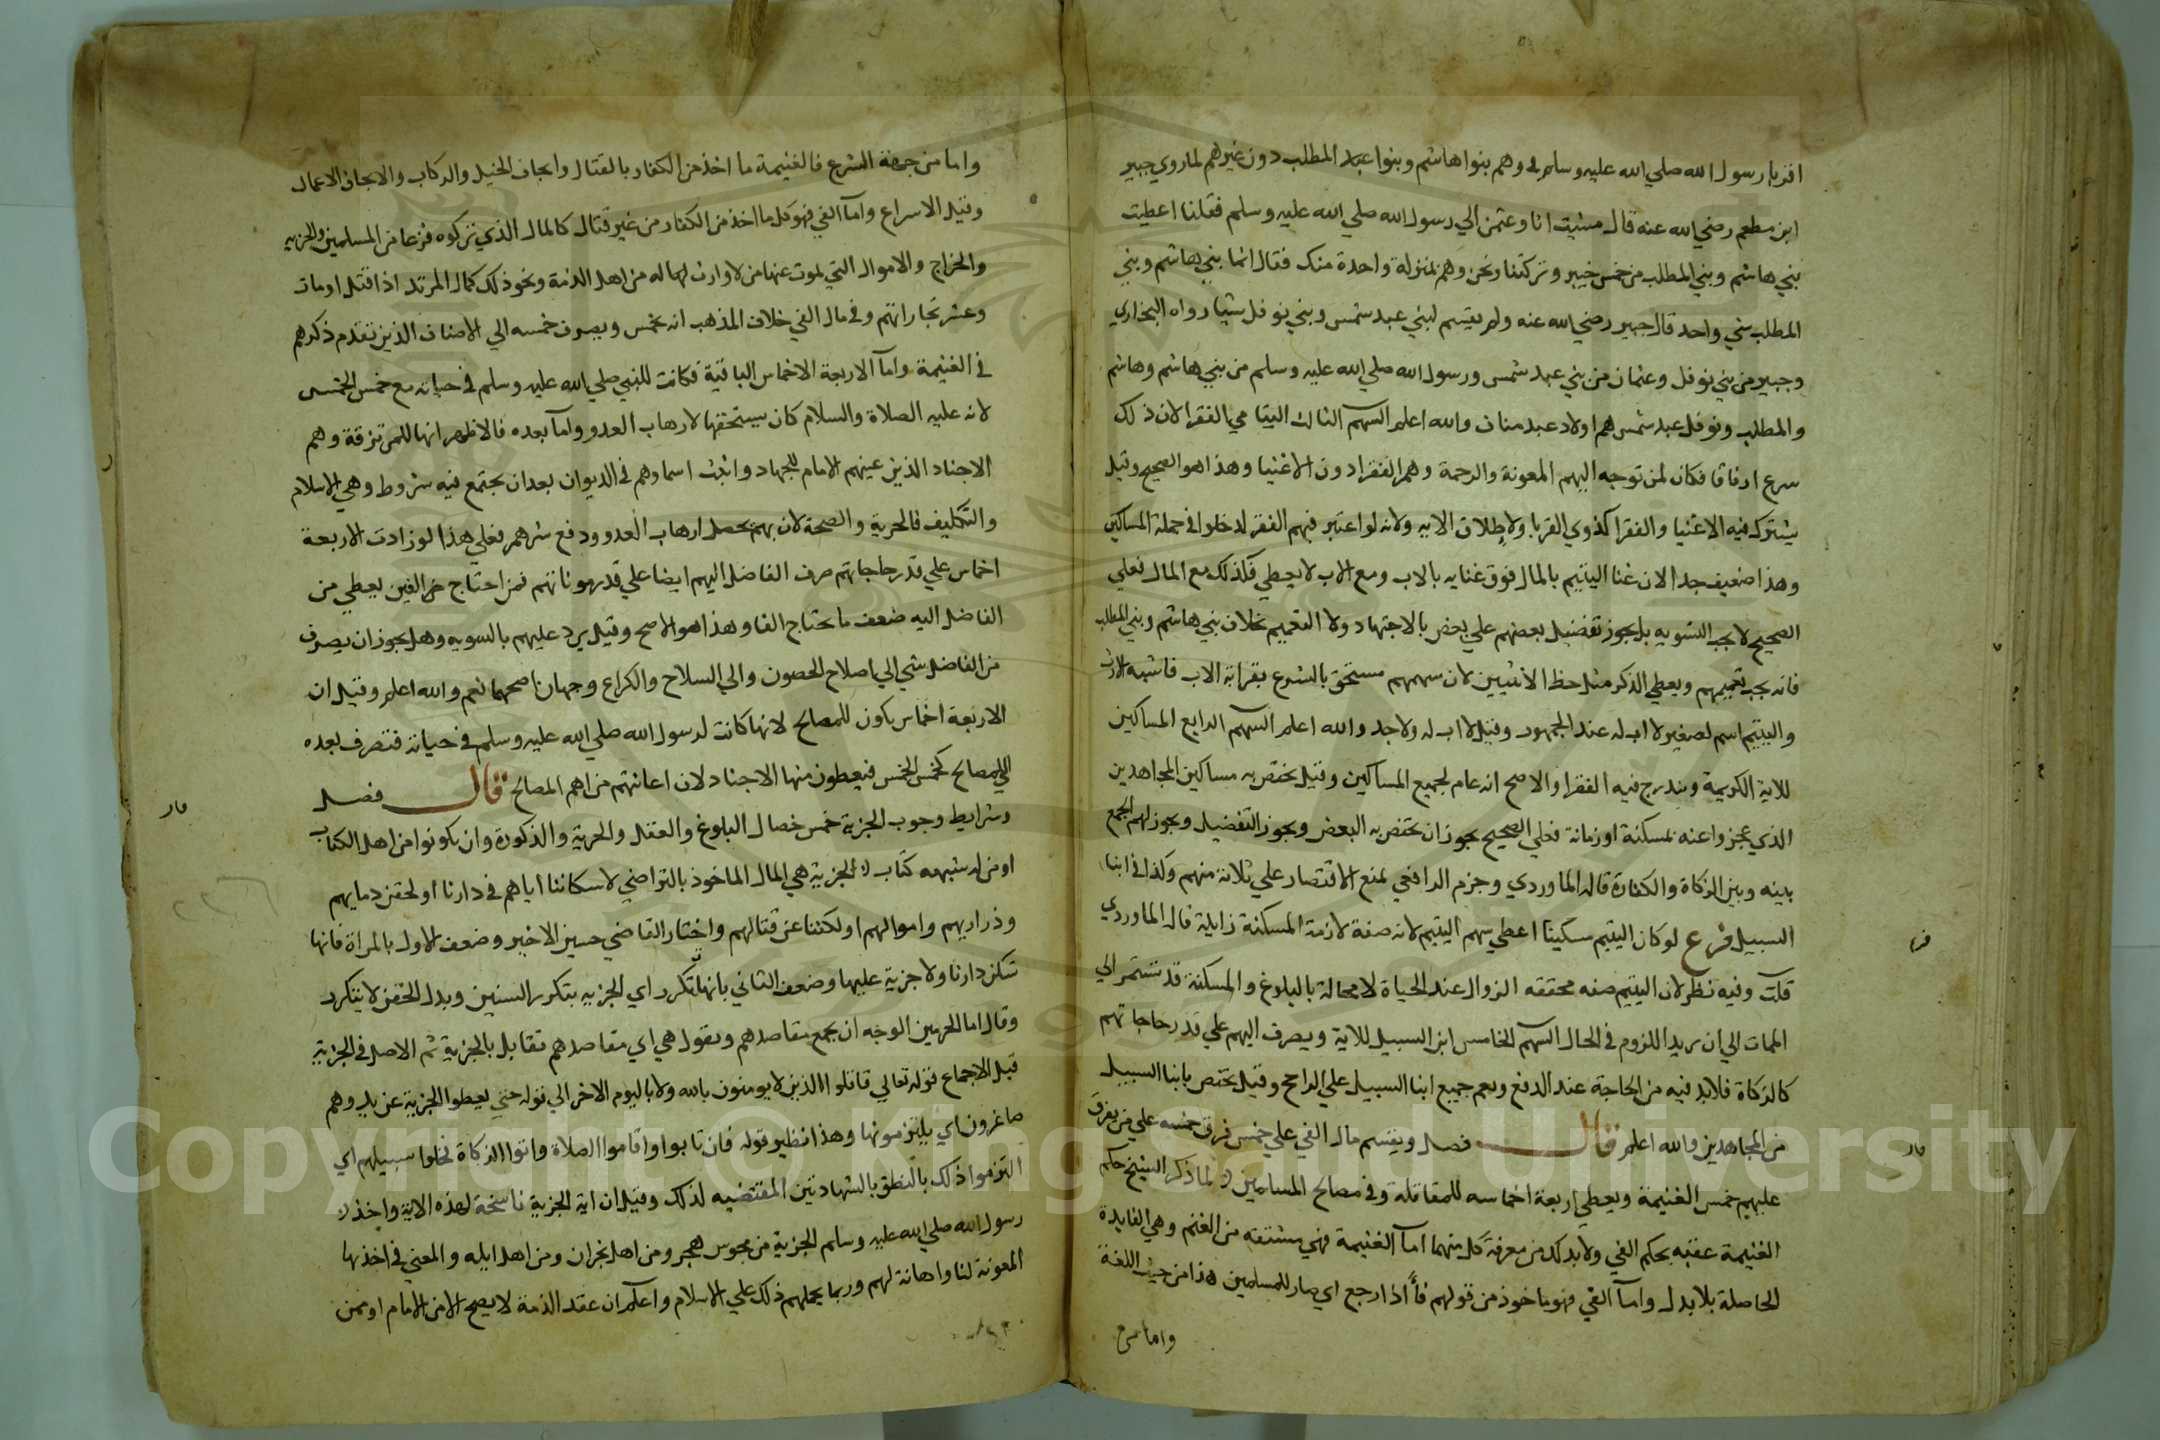 اقربا رسول الله صلي الله عليه وسلم وهم بنوا هاشم وبنوا عبد المطلب دون غيرهم لما روي جبير
ابن مطعم رضي الله عنه قال مشيت انا وعثمن الي رسول الله صلي الله عليه وسلم فقلنا اعطيت
بني هاشم وبني المطلب من خمس خيبر وتركتنا ونحن وهم بمنزلة واحدة منك فقال انما بني هاشم وبني
المطلب شي واحد قال جبير رضي الله عنه ولم يقسم لبني عبد شمس وبني نوفل شيا رواه البخاري
وجبير من بني نوفل وعثمان من بني عبد شمس ورسول الله صلي الله عليه وسلم من بني هاشم وهاشم
والمطلب ونوفل عبد شمس هم اولاد عبد مناف والله اعلم السهم الثالث اليتامي الفقرا لان ذلك
سرع ارفاقا فكان لمن توجه اليهم المعونة والرحمة وهم الفقرا دون الاغنيا وهذا هو الصحيح وقيل
يشترك فيه الاغنيا والفقرا كذوي القربا ولاطلاق الايه ولانه لو اعتبر فيهم الفقر لدخلوا في جملة المساكين
وهذا ضعيف جدا لان غنا اليتيم بالمال فوق غنايه بالاب ومع الاب لا يعطي فكذلك مع المال فعلي
الصحيح لا يجب التسويه بل يجوز تفضيل بعضهم علي بعض بالاجتهاد ولا التعميم بخلاف بني هاشم وبني المطلب
فانه يجب تعميمهم ويعطي الذكر مثل حظ الانثيين لان سهمهم مستحق بالشرع بقرابة الاب فاشبه الارث
واليتيم اسم لصغير لا اب له عند الجمهور وقيل لا اب له ولا جد والله اعلم السهم الرابع المساكين
للاية الكريمة ويندرج فيه الفقرا والاصح انه عام لجميع المساكين وقيل يختص به مساكين المجاهدين
الذي عجزوا عنه بمسكنة او زمانة فعلي الصحيح يجوز ان يختص به البعض ويجوز التفضيل ويجوز لهم الجمع
بينه وبين الزكاة والكفارة قاله الماوردي وجزم الرافعي بمنع الاقتصار علي ثلاثة منهم وكذا في ابنا
السبيل فرع لو كان اليتيم مسكينا اعطي سهم اليتيم لانه صفة لازمة المسكنة زايلة قاله الماوردي
قلت وفيه نظر لان اليتيم صفه محققه الزوال عند الحياة لا محالة بالبلوغ والمسكنة قد تستمر الي
الممات الي ان يريد اللزوم في الحال السهم الخامس ابن السبيل للاية ويصرف اليهم علي قدر حاجاتهم
كالزكاة فلابد فيه من الحاجة عند الدفع ويعم جميع ابنا السبيل علي الراجح وقيل يختص بابنا السبيل
من المجاهدين والله اعلم قال فصل ويقسم مال الفي علي خمس فرق خمسه علي من يفرق
عليهم خمس الغنيمة ويعطي اربعة اخماسه للمقاتلة وفي مصالح المسلمين لما ذكر الشيخ حكم
الغنيمة عقبه بحكم الفي ولابد لك من معرفة كل منهما اما الغنيمة فهي مشتقه من الغنم وهي الفايدة
الحاصلة بلا بدل واما الفي فهو ماخوذ من قولهم فا اذا رجع اي صار للمسلمين هذا من حيث اللغة
واما من
فرع
قال
واما من جهة الشرع فالغنيمة ما اخذ من الكفار بالقتال وايجاف الخيل والركاب والايجاف الاعمال
وقيل الاسراع واما الفي فهو كل ما اخذ من الكفار من غير قتال كالمال الذي تركوه فزعا من المسلمين والجزيه
والخراج والاموال التي يموت عنها من لا وارث لها له من اهل الذمة ونحو ذلك كمال المرتد اذا قتل او مات
وعشر تجاراتهم وفي مال الفي خلاف المذهب انه يخمس ويصرف خمسه الي الاصناف الذين تقدم ذكرهم
في الغنيمة واما الاربعة الاخماس الباقية فكانت للنبي صلي الله عليه وسلم في حياته مع خمس الخمس
لانه عليه الصلاة والسلام كان يستحقها لارهاب العدو واما بعده فالاظهر انها للمرتزقة وهم
الاجناد الذين عينهم الامام للجهاد واثبت اسماوهم في الديوان بعد ان يجتمع فيه شروط وهي الاسلام
والتكليف فالحرية والصحة لان بهم يحصل ارهاب العدو ودفع شرهم فعلي هذا لو زادت الاربعة
اخماس علي قدر حاجاتهم صرف الفاضل اليهم ايضا علي قدر موناتهم فمن احتاج من الفين يعطي من
الفاضل اليه ضعف ما يحتاج الفا وهذا هو الاصح وقيل يرد عليهم بالسويه وهل يجوز ان يصرف
من الفاضل شي الي اصلاح الحصون والي السلاح والكراع وجهان اصحهما نعم والله اعلم وقيل ان
الاربعة اخماس يكون للمصالح لانها كانت لرسول الله صلي الله عليه وسلم في حياته فتصرف بعده
الي المصالح كخمس الخمس فيعطون منها الاجناد لان اعانتهم من اهم المصالح قال فصل
وشرايط وجوب الجزية خمس خصال البلوغ والعقل والحرية والذكورة وان يكونوا من اهل الكتاب
او من له شبهه كتاب الجزية هي المال الماخوذ بالتراضي لاسكاننا اياهم في دارنا او لحقن دمايهم
وذراريهم واموالهم او لكفنا عن قتالهم واختار القاضي حسين الاخير وضعف الاول بالمراة فانها
تسكن دارنا ولا جزية عليها وضعف الثاني بانها تكرر اي الجزيه بتكرر السنين وبدل الحقن لا يتكرر
وقال امام الحرمين الوجه ان يجمع مقاصدهم ونقول هي اي مقاصدهم تقابل بالجزية ثم الاصل في الجزية
قبل الاجماع قوله تعالي قاتلوا الذين لا يومنون بالله ولا باليوم الاخر الي قوله حتي يعطوا الجزية عن يد وهم
صاغرون اي يلتزمونها وهذا نظير قوله فان تابوا واقاموا الصلاة واتوا الزكاة فخلوا سبيلهم اي
التزموا ذلك بالنطق بالشهادتين المقتضيه لذلك وقيل ان اية الجزية ناسخة لهذه الاية واخذ
رسول الله صلي الله عليه وسلم الجزية من مجوس هجر ومن اهل نجران ومن اهل ايله والمعني في اخذها
المعونة لنا واهانة لهم وربما يحملهم ذلك علي الاسلام واعلم ان عقد الذمة لا يصح الا من الامام او ممن
قال
Copyright © King Saud University